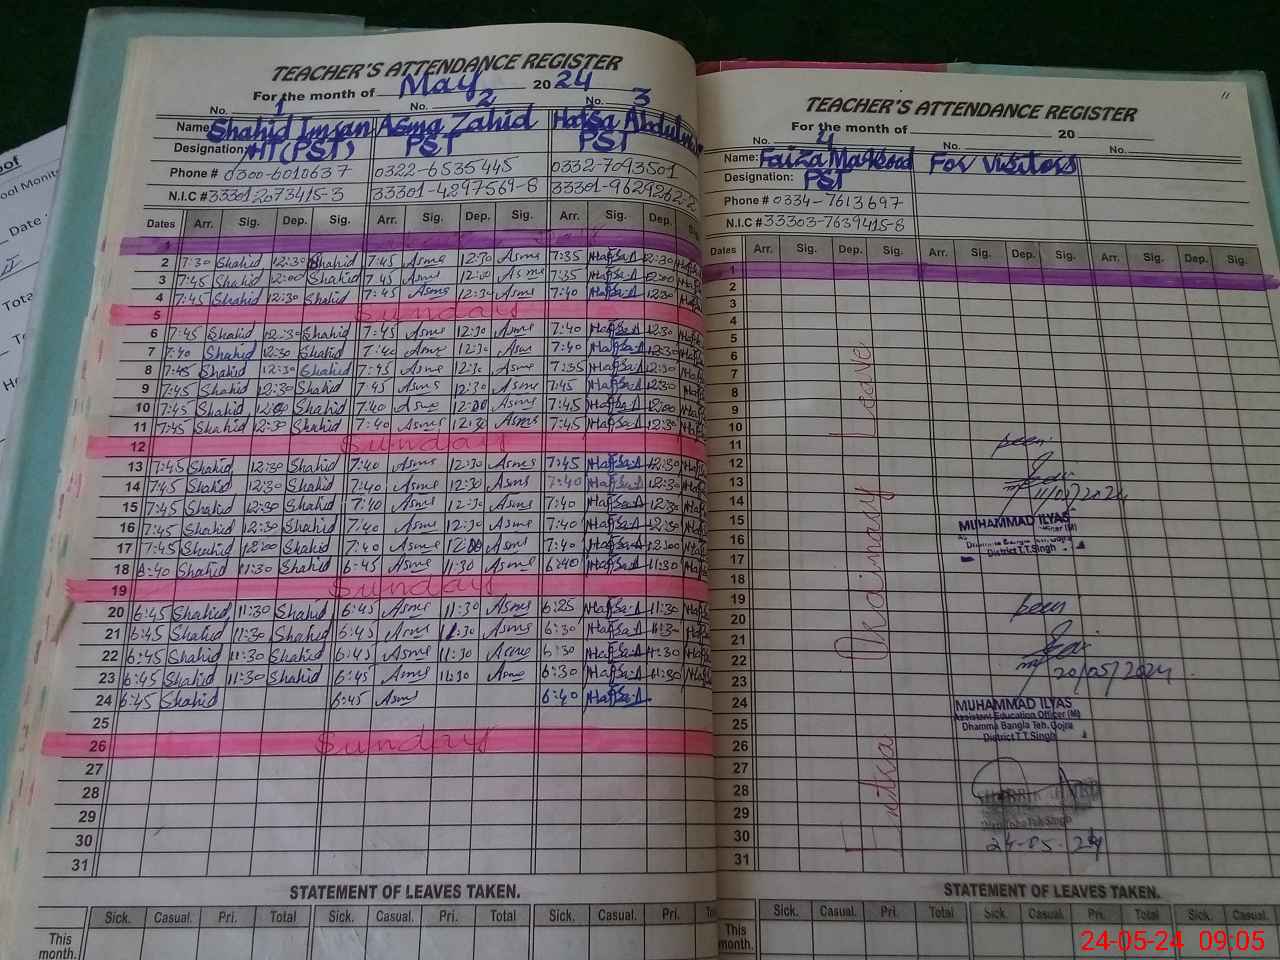 TEACHER'S ATTENDANCE REGISTER
For the month of May 2024
No. 1 No. 2 No. 3
Name: Shahid Imran Asma Zahid Hafsa
Designation: HT (PST) PST PST
Phone # 0300-6010637 0322-6535445 0332-7093501
N.I.C # 33301-2073415-3 33301-4297569-8 33301-9629262-2
Dates Arr. Sig. Dep. Sig. Arr. Sig. Dep. Sig. Arr. Sig. Dep.
1
2 7:30 Shahid 12:30 Shahid 7:45 Asma 12:30 Asma 7:35 Hafsa.A 12:30
3 7:45 Shahid 12:00 Shahid 7:45 Asma 12:00 Asma 7:35 Hafsa.A 12:00
4 7:45 Shahid 12:30 Shahid 7:45 Asma 12:30 Asma 7:40 Hafsa.A 12:30
5 Sunday
6 7:45 Shahid 12:30 Shahid 7:45 Asma 12:30 Asma 7:40 Hafsa.A 12:30
7 7:40 Shahid 12:30 Shahid 7:40 Asma 12:30 Asma 7:40 Hafsa.A 12:30
8 7:45 Shahid 12:30 Shahid 7:45 Asma 12:30 Asma 7:35 Hafsa.A 12:30
9 7:45 Shahid 12:30 Shahid 7:45 Asma 12:30 Asma 7:45 Hafsa.A 12:30
10 7:45 Shahid 12:00 Shahid 7:40 Asma 12:00 Asma 7:45 Hafsa.A 12:00
11 7:45 Shahid 12:30 Shahid 7:40 Asma 12:30 Asma 7:45 Hafsa.A 12:30
12 Sunday
13 7:45 Shahid 12:30 Shahid 7:40 Asma 12:30 Asma 7:45 Hafsa.A 12:30
14 7:45 Shahid 12:30 Shahid 7:40 Asma 12:30 Asma 7:40 Hafsa.A 12:30
15 7:45 Shahid 12:30 Shahid 7:40 Asma 12:30 Asma 7:40 Hafsa.A 12:30
16 7:45 Shahid 12:30 Shahid 7:40 Asma 12:30 Asma 7:40 Hafsa.A 12:30
17 7:45 Shahid 12:00 Shahid 7:40 Asma 12:00 Asma 7:40 Hafsa.A 12:00
18 6:40 Shahid 11:30 Shahid 6:45 Asma 11:30 Asma 6:40 Hafsa.A 11:30
19 Sunday
20 6:45 Shahid 11:30 Shahid 6:45 Asma 11:30 Asma 6:25 Hafsa.A 11:30
21 6:45 Shahid 11:30 Shahid 6:45 Asma 11:30 Asma 6:30 Hafsa.A 11:30
22 6:45 Shahid 11:30 Shahid 6:45 Asma 11:30 Asma 6:30 Hafsa.A 11:30
23 6:45 Shahid 11:30 Shahid 6:45 Asma 11:30 Asma 6:30 Hafsa.A 11:30
24 6:45 Shahid 6:45 Asma 6:40 Hafsa.A
25
26 Sunday
27
28
29
30
31
STATEMENT OF LEAVES TAKEN.
Sick. Casual. Pri. Total Sick. Casual. Pri. Total Sick. Casual. Pri.
This month.
TEACHER'S ATTENDANCE REGISTER
11
For the month of 20
No. 4 No. No.
Name: Faiza For Visitors
Designation: PST
Phone # 0334-7613697
N.I.C # 33303-7639415-8
Dates Arr. Sig. Dep. Sig. Arr. Sig. Dep. Sig. Arr. Sig. Dep. Sig.
1
2
3
4
5
6
7
8
9
10
11
12
13
14
15
16
17
18
19
20
21
22
23
24
25
26
27
28
29
30
31
Leave
MUHAMMAD ILYAS
District T.T.Singh
20/05/2024
MUHAMMAD ILYAS
Assistant Education Officer (M)
Dhamma Bangla Teh. Gojra
District T.T.Singh
24-05-24
STATEMENT OF LEAVES TAKEN.
Sick. Casual. Pri. Total Sick. Casual. Pri. Total Sick. Casual.
This month.
Date
24-05-24 09:05